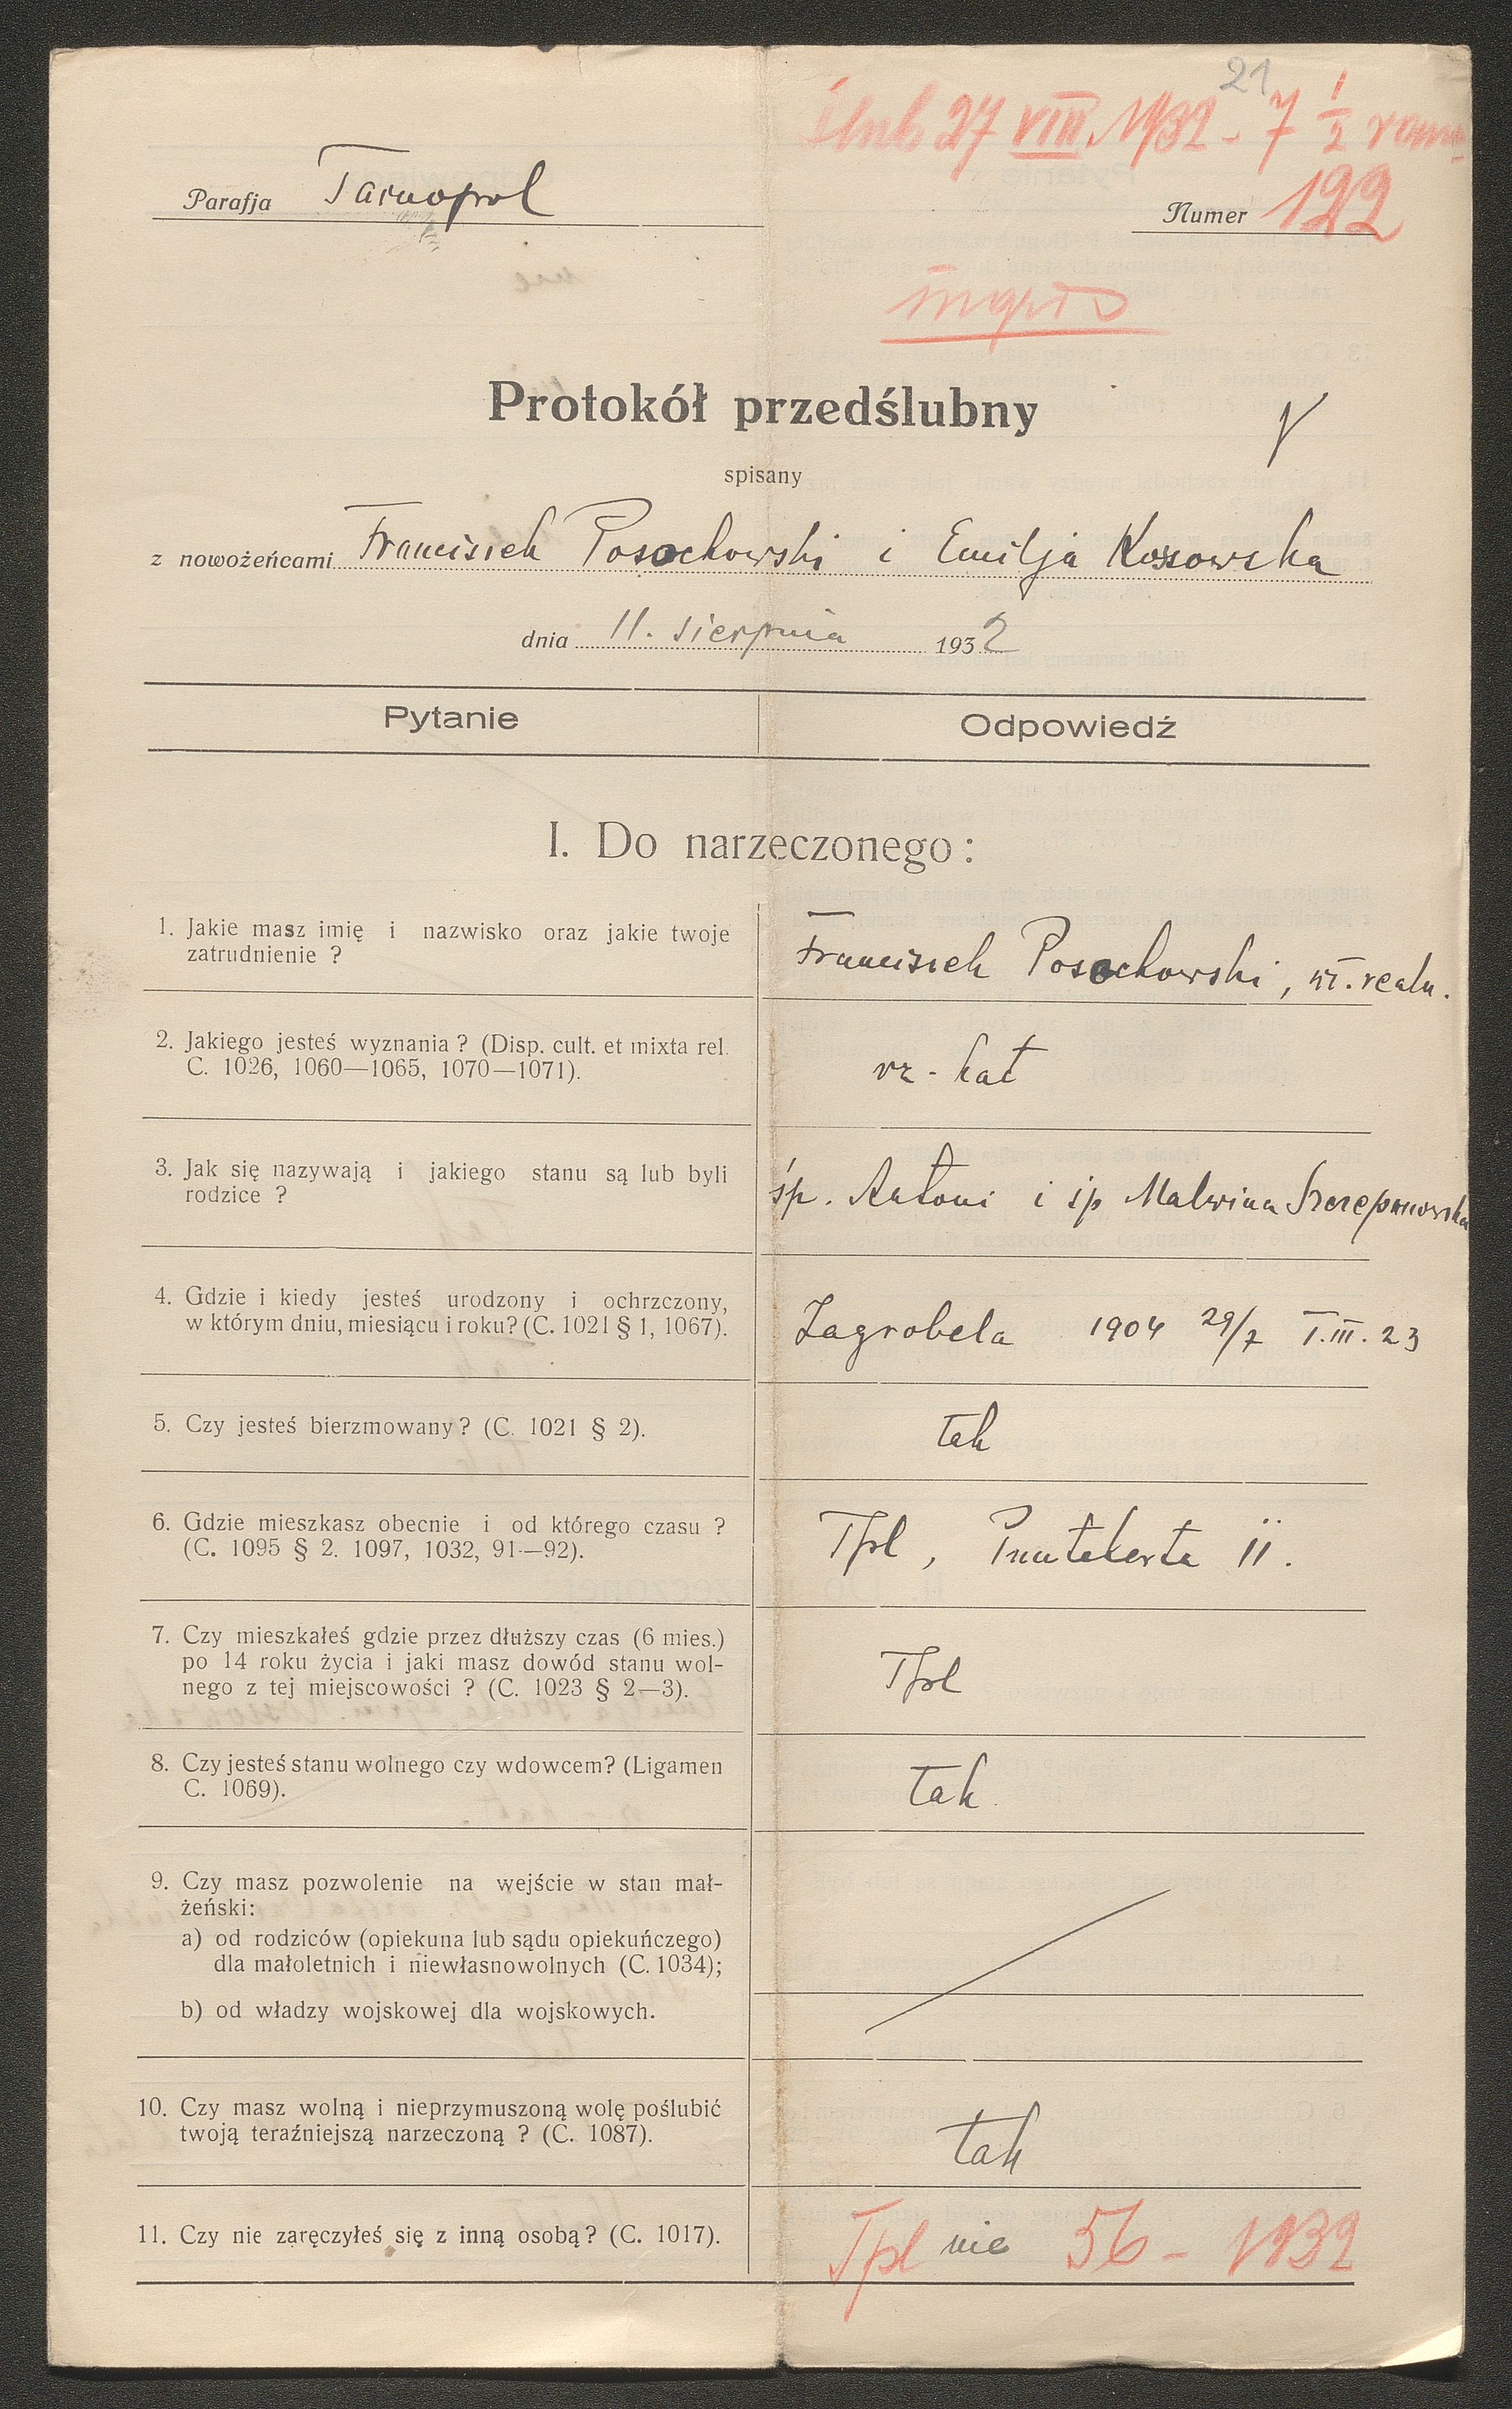 21
Ślub 27 VIII. 1932 - 7 1/2 rano
Parafja Tarnopol
Numer 122
ingros
Protokół przedślubny
spisany
z nowożeńcami Franciszek Posochowski i Emilja Kossowska
dnia 11. sierpnia 1932
Pytanie Odpowiedź
I. Do narzeczonego:
1. Jakie masz imię i nazwisko oraz jakie twoje
zatrudnienie ?
Franciszek Posochowski, wł. realn.
2. Jakiego jesteś wyznania ? (Disp. cult. et mixta rel.
C. 1026, 1060—1065, 1070—1071).
rz-kat
3. Jak się nazywają i jakiego stanu są lub byli
rodzice ?
śp. Antoni i śp Malwina
4. Gdzie i kiedy jesteś urodzony i ochrzczony,
w którym dniu, miesiącu i roku? (C. 1021 § 1, 1067).
Zagrobela 1904 29/7 T. III. 23
5. Czy jesteś bierzmowany ? (C. 1021 § 2).
tak
6. Gdzie mieszkasz obecnie i od którego czasu ?
(C. 1095 § 2. 1097, 1032, 91—92).
Tpl, 11.
7. Czy mieszkałeś gdzie przez dłuższy czas (6 mies.)
po 14 roku życia i jaki masz dowód stanu wol-
nego z tej miejscowości ? (C. 1023 § 2—3).
Tpl
8. Czy jesteś stanu wolnego czy wdowcem? (Ligamen
C. 1069).
tak
9. Czy masz pozwolenie na wejście w stan mał-
żeński:
a) od rodziców (opiekuna lub sądu opiekuńczego)
dla małoletnich i niewłasnowolnych (C. 1034);
b) od władzy wojskowej dla wojskowych.
10. Czy masz wolną i nieprzymuszoną wolę poślubić
twoją teraźniejszą narzeczoną ? (C. 1087).
tak
11. Czy nie zaręczyłeś się z inną osobą? (C. 1017).
Tpl nie 56 - 1932